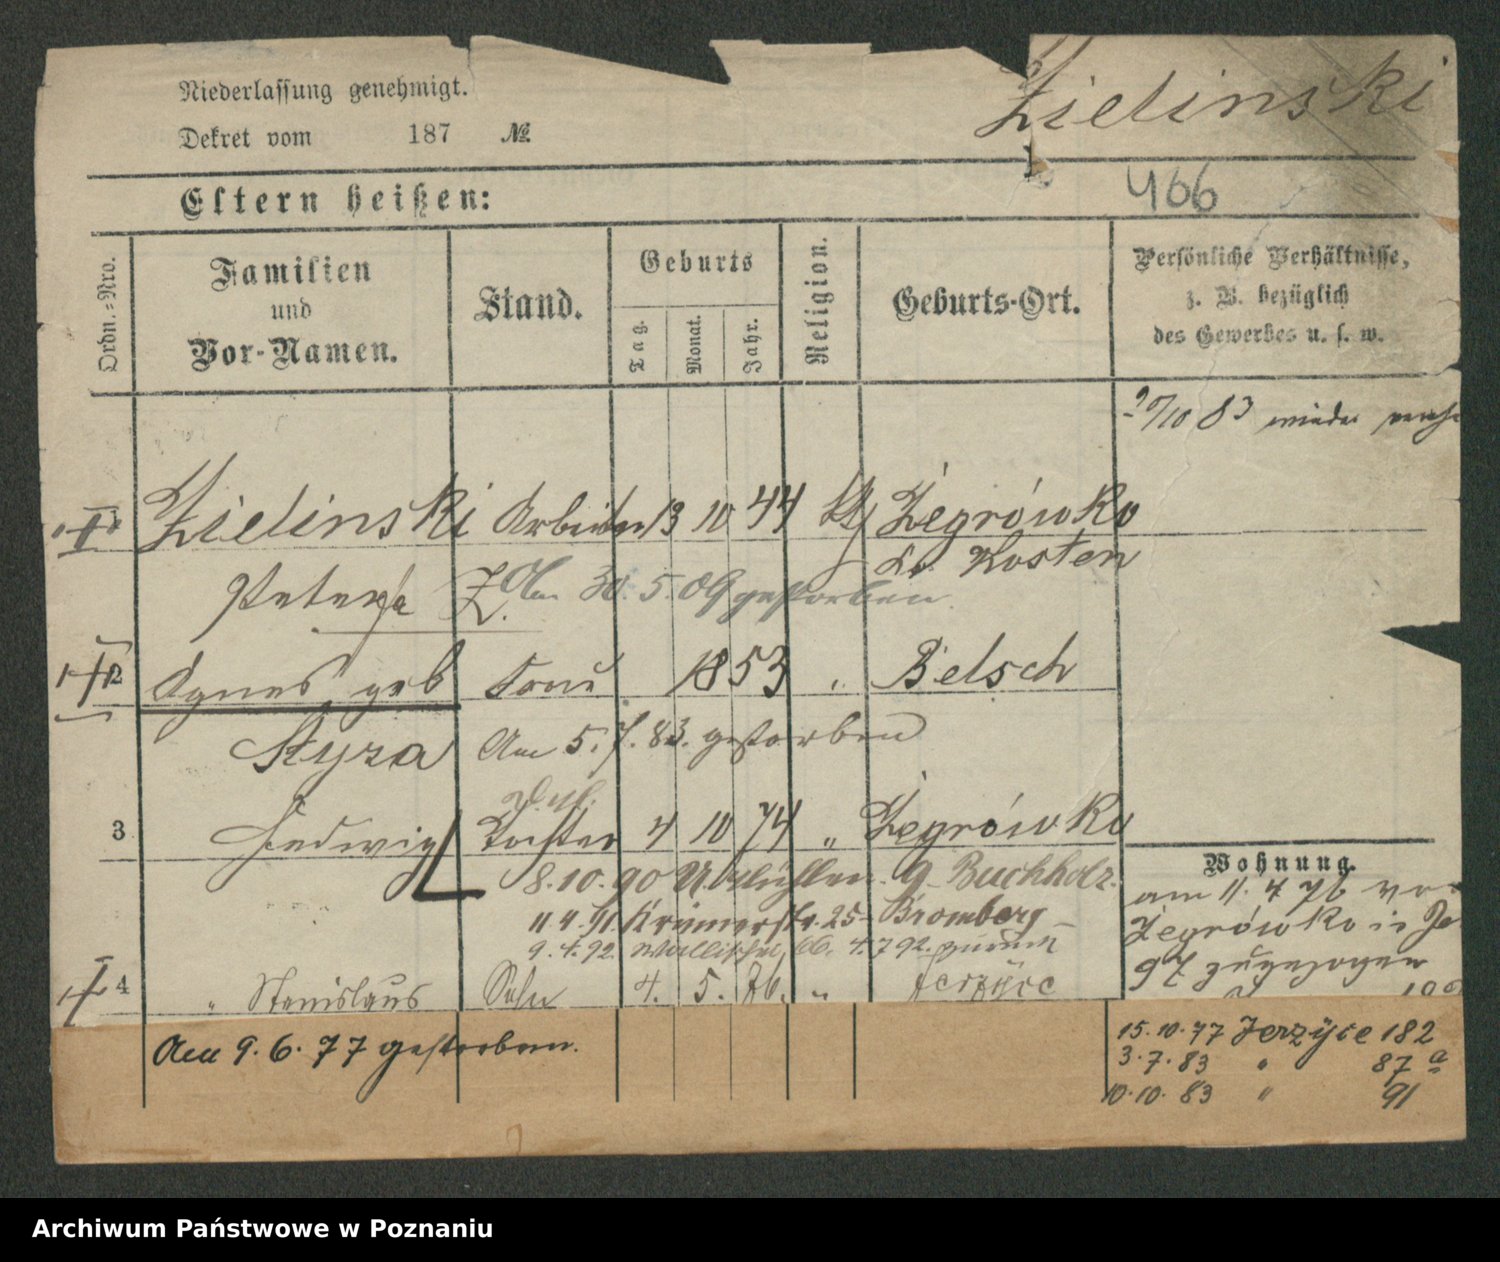 Niederlassung genehmigt.
Dekret vom 187 №.
Zielinski
466
Eltern heißen:
Ordn.-Nro.
Familien
und
Vor-Namen.
Stand.
Geburts
Tag.
Monat.
Jahr.
Religion.
Geburts-Ort.
Persönliche Verhältnisse,
z. B. bezüglich
des Gewerbes u. s. w.
20/10 83 wieder
1 Zielinski Arbeiter 13 10 44 Żegrówko
Kr. Kosten
Peter Am 30. 5. 09 gestorben.
2 Agnes geb Frau 1853 " Belsch
Styza Am 5. 7. 83. gestorben
3 Hedwig Tochter 4 10 74 " Żegrówko
8. 10. 90 b. Buchholz.
11 4. 91. Krämerstr. 25 Bromberg
9. 4. 92. Wallischei 66. 4. 7 92. zurück
4 " Stanislaus Sohn 4. 5. 76. " Jerzyce
Am 9. 6. 77 gestorben.
Wohnung.
am 11. 4 76 von
Żegrówko in Je
97 zugezogen
15. 10. 77 Jerzyce 182
3. 7. 83 " 87 a
10. 10. 83 " 91
Archiwum Państwowe w Poznaniu